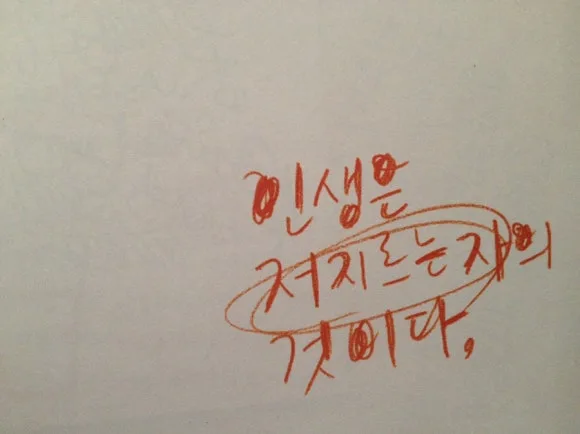 인생은
저지르는자의
것이다,